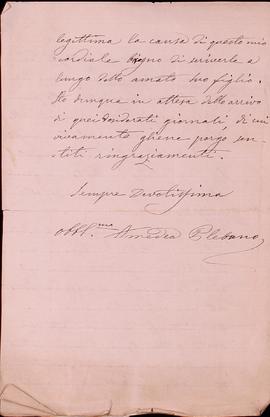 legittima la causa di questo mio
cordiale bisogno di scriverle a
lungo dello amato suo figlio.
Sto dunque in attesa dello arrivo
di quei desiderati giornali di cui
vivamente gliene porgo sen-
titi ringraziamenti.
Sempre Devotissima
Obbl.ma Amedea Plebano